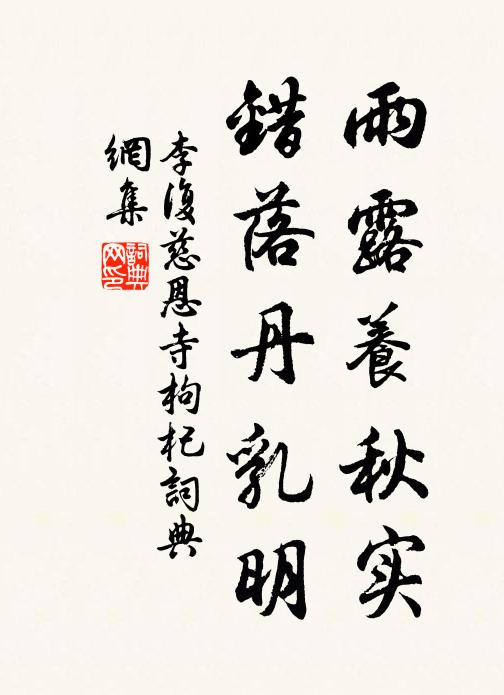 雨露養秋实
錯落丹乳明
李復慈恩寺枸杞詞典
網集
詞典
网印